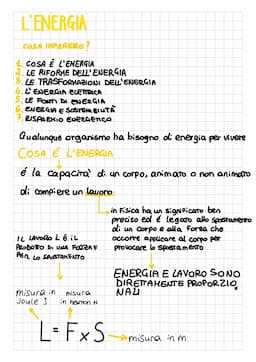 L'ENERGIA
COSA IMPARERO?
1. COSA É L'ENERGIA
2. LE RIFORME DELL'ENERGIA
3. LE TRASFORMAZIONI DELL'ENERGIA
4. L'ENERGIA ELETTRICA
5. LE FONTI DI ENERGIA
6. ENERGIA E SOSTENIBILITÀ
7. RISPARMIO ENERGETICO
Qualunque organismo ha bisogno di energia per vivere
COSA É L'ENERGIA
é la capacità di un corpo, animato o non animato
di compiere un lavoro
in Fisica ha un significato ben
preciso ed é legato allo spostamento
di un corpo e alla forza che
occorre applicare al corpo per
provocare lo spostamento
IL LAVORO L É IL
PRODOTTO DI UNA FORZA F
PER LO SPOSTAMENTO
ENERGIA E LAVORO SONO
DIRETTAMENTE PROPORZIO
NALI
misura in
Joule J
misura
in newton N
L=FxS
misura in m